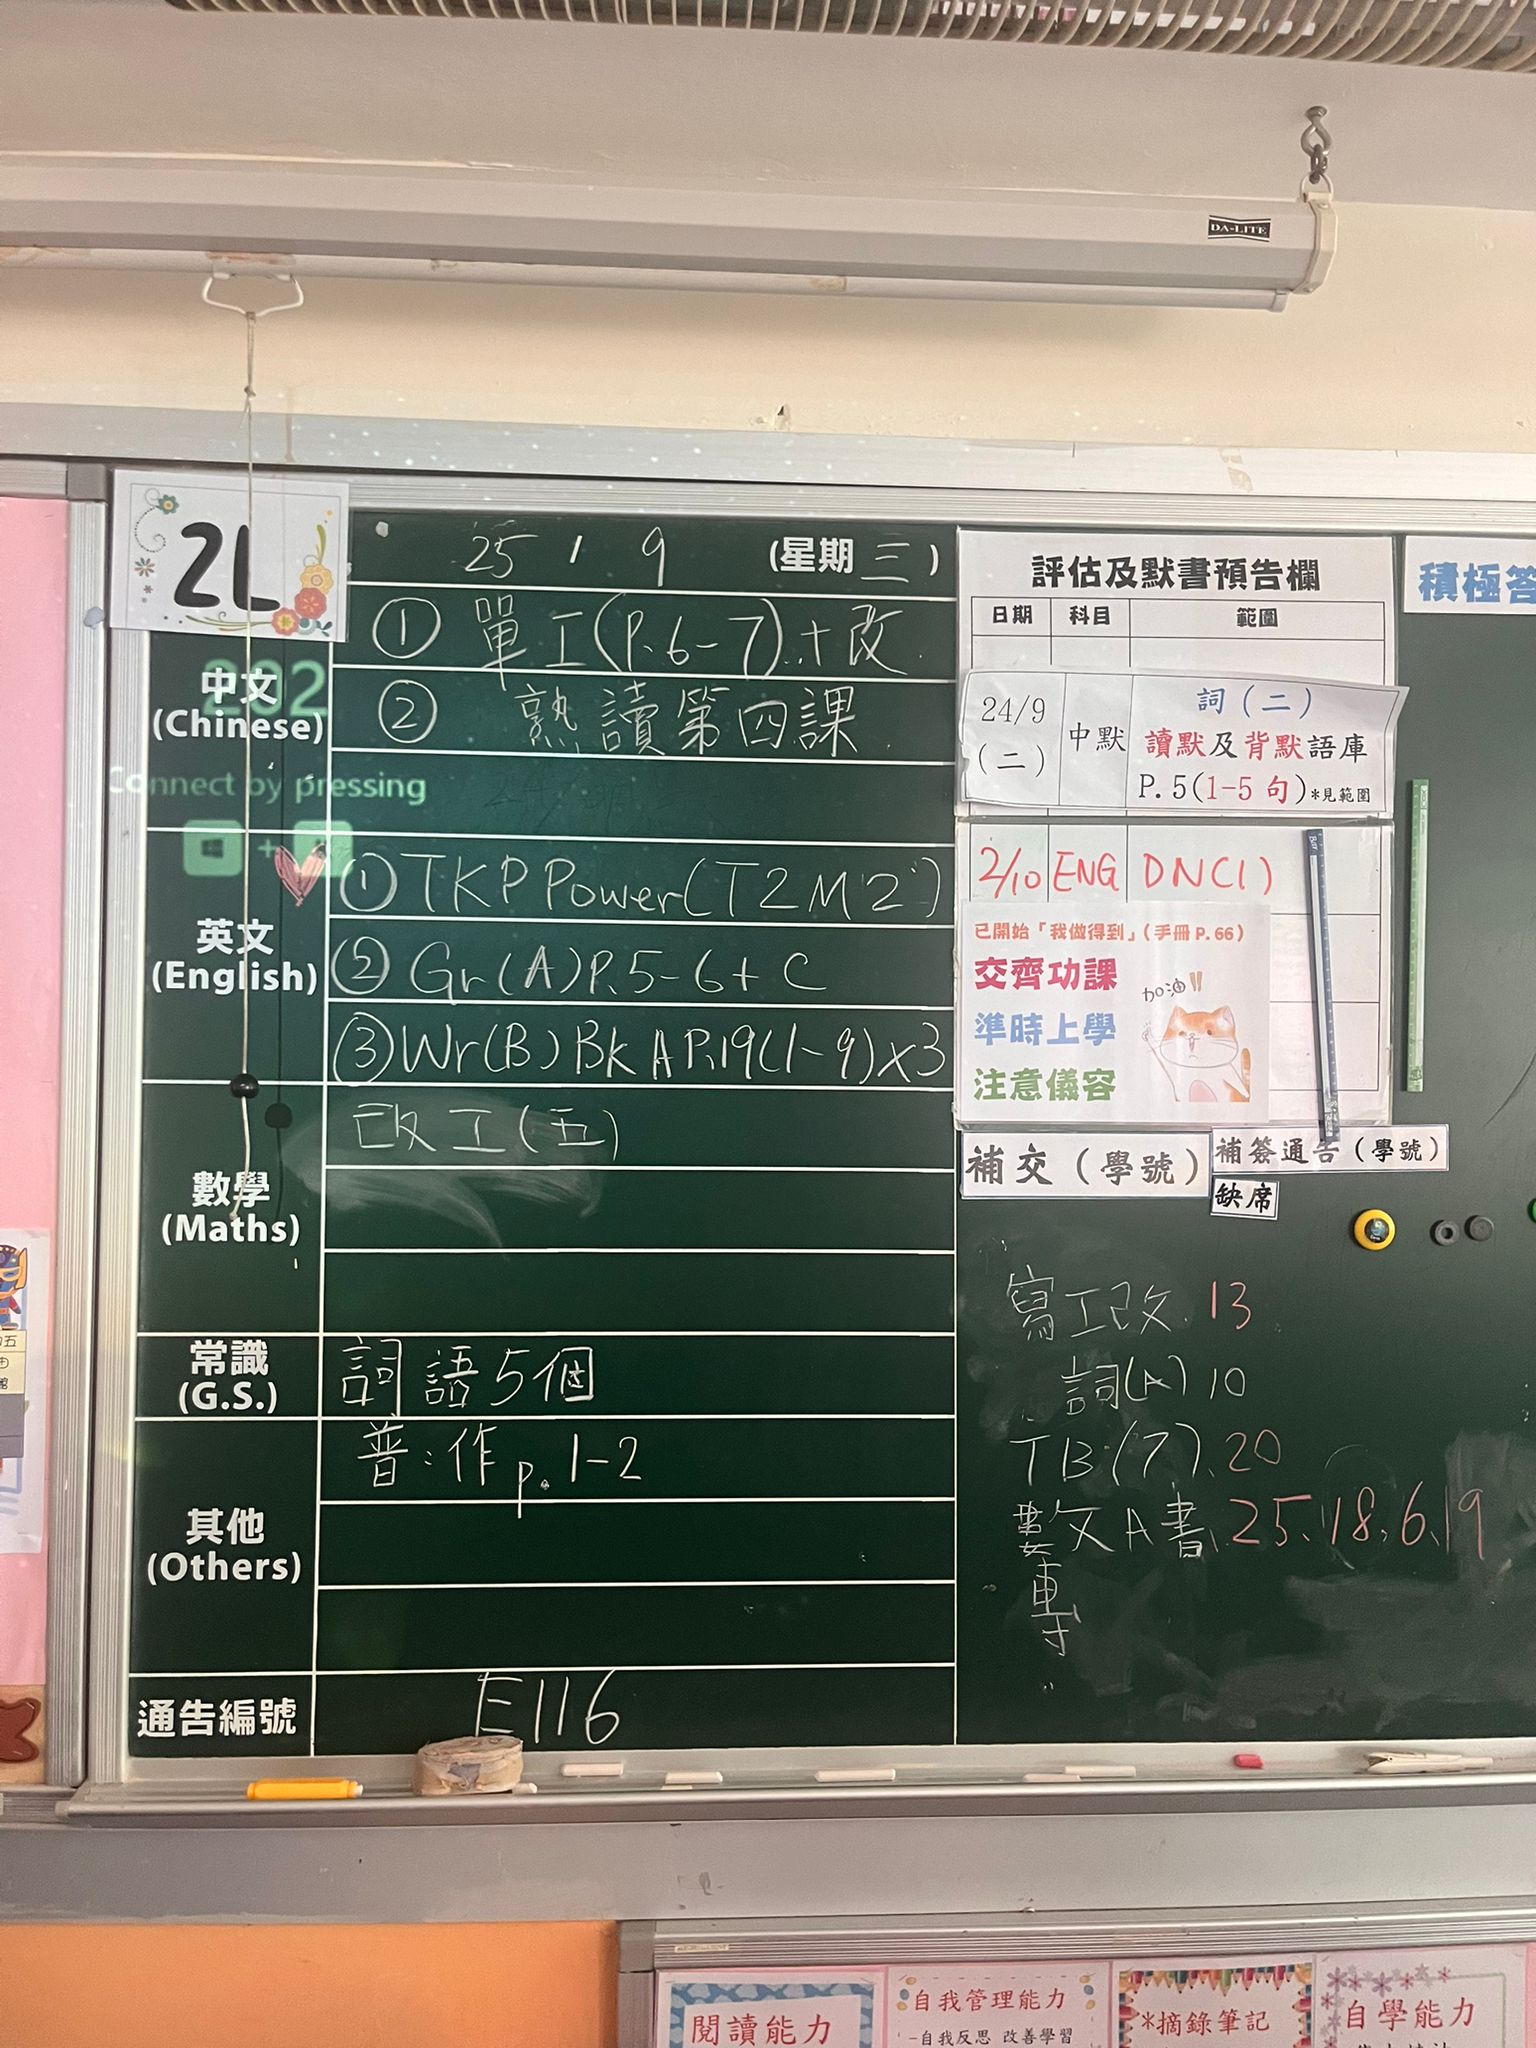 DA-LITE
2L
25 / 9 (星期 三 )
中文
(Chinese)
202
Connect by pressing
+
① 單工(P.6-7)+改
② 熟讀第四課
英文
(English)
① TKP Power(T2M2)
② Gr(A)P.5-6+C
③ Wr(B) BK A P.19(1-9)x3
數學
(Maths)
改工(五)
常識
(G.S.)
詞語5個
其他
(Others)
普:作p.1-2
通告編號
E116
評估及默書預告欄
日期 科目 範圍
24/9
(二)
中默
詞(二)
讀默及背默語庫
P.5(1-5 句)*見範圍
2/10 ENG DN(1)
已開始「我做得到」(手冊 P.66)
交齊功課
加油!!
準時上學
注意儀容
補交(學號)
補簽通告(學號)
缺席
寫工改.13
詞(A) 10
TB(7).20
A書.25.18.6.19
積極答
閱讀能力
自我管理能力
-自我反思 改善學習
*摘錄筆記
自學能力